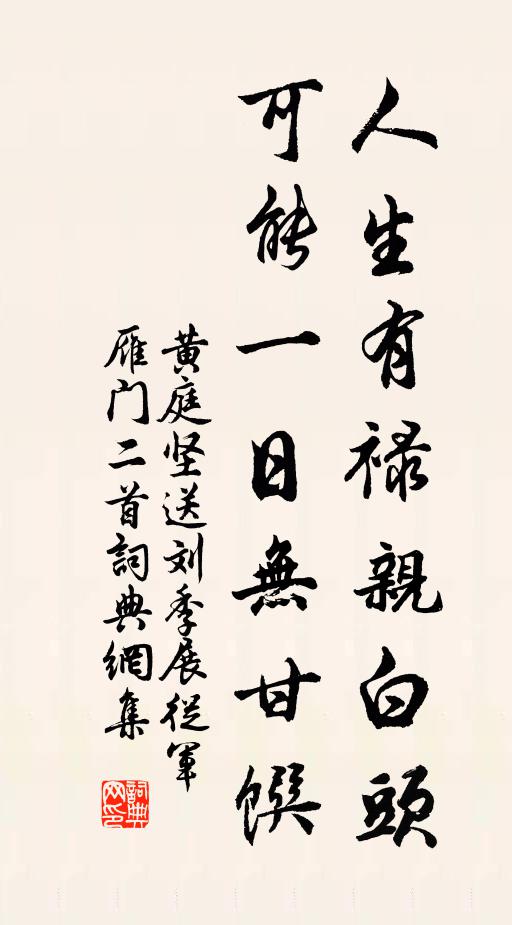 人生有禄親白頭
可能一日無甘饌
黄庭坚送刘季展從軍
雁门二首詞典網集
詞典网印